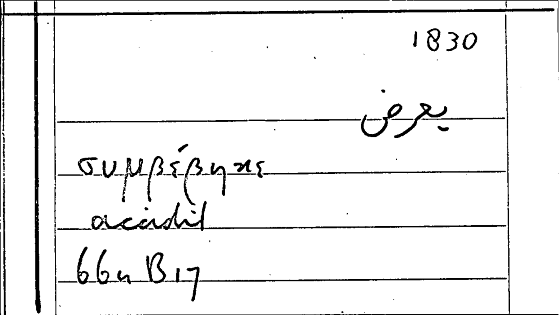 1830
يعرض
συμβέβηκε
accidit
66a B17